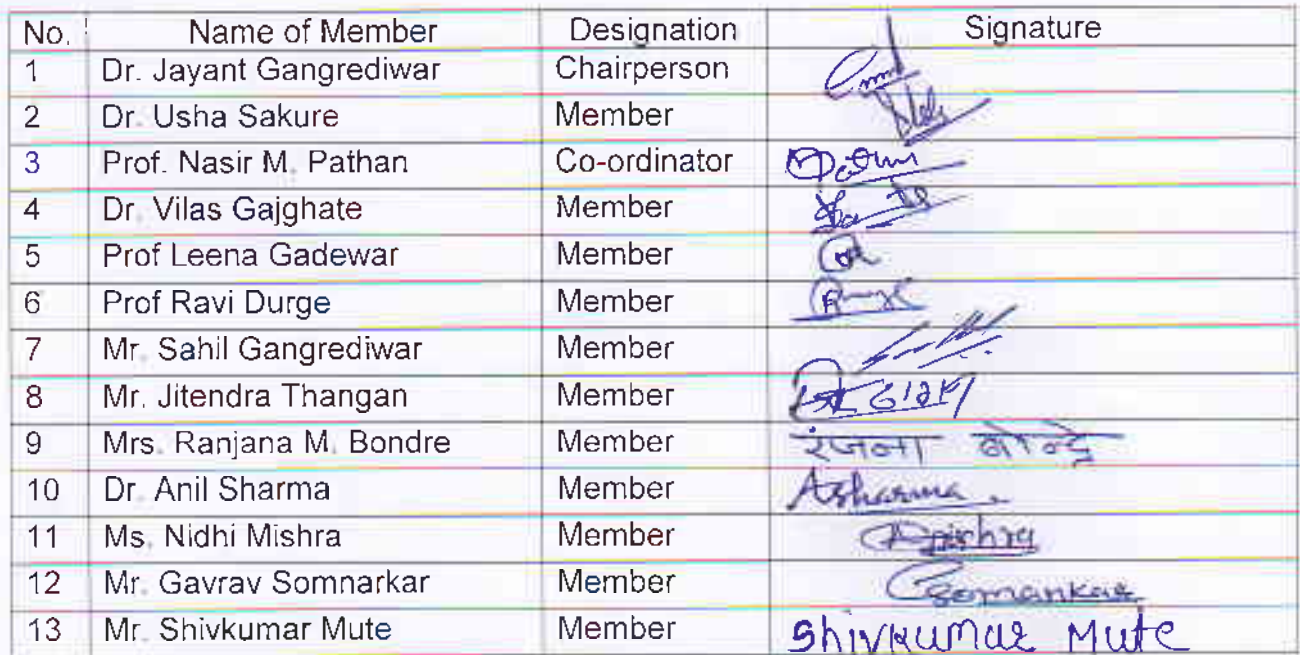 No. Name of Member Designation Signature
1 Dr. Jayant Gangrediwar Chairperson
2 Dr. Usha Sakure Member
3 Prof. Nasir M. Pathan Co-ordinator
4 Dr. Vilas Gajghate Member
5 Prof Leena Gadewar Member
6 Prof Ravi Durge Member
7 Mr. Sahil Gangrediwar Member
8 Mr. Jitendra Thangan Member
9 Mrs. Ranjana M. Bondre Member रंजना बोन्द्रे
10 Dr. Anil Sharma Member Asharma
11 Ms. Nidhi Mishra Member
12 Mr. Gavrav Somnarkar Member
13 Mr. Shivkumar Mute Member Shivkumar Mute